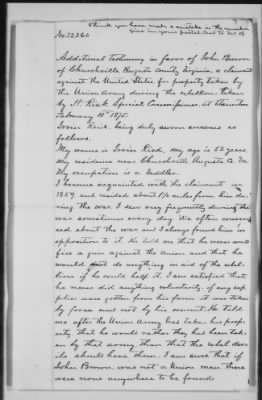 I think you have made a mistake in the number
given in your postal card to Mr. B
No 22366
Additional testimony in favor of John Brown
of Churchville Augusta County Virginia, a claimant
against the United States for property taken by
the Union Army during the rebellion taken
by H. Risk Special Commissioner, at Staunton
February 10th 1875.
Irvin Reid, being duly sworn answers as
follows.
My name is Irvin Reid, my age is 52 years.
My residence near Churchville Augusta Co. Va.
My occupation is a Saddler.
I became acquainted with the claimant in
1859 and resided about 1 1/2 miles from him du
ring the war. I saw him frequently during the
war sometimes every day. We often convers
sed about the war and I always found him in
opposition to it. He told me that he never would
fire a gun against the Union and that he
would not do anything in aid of the rebel
lion if he could help it. I am satisfied that
he never did anything voluntarily. if any sup
plies were gotten from his farm it was taken
by force and not by his consent. He told
me after the Union Army had taken his prop
erty that he would rather they has been tak
en by that army than that the rebel devi
ls should have them. I am sure that if
John Brown, was not a Union man there
were none anywhere to be found